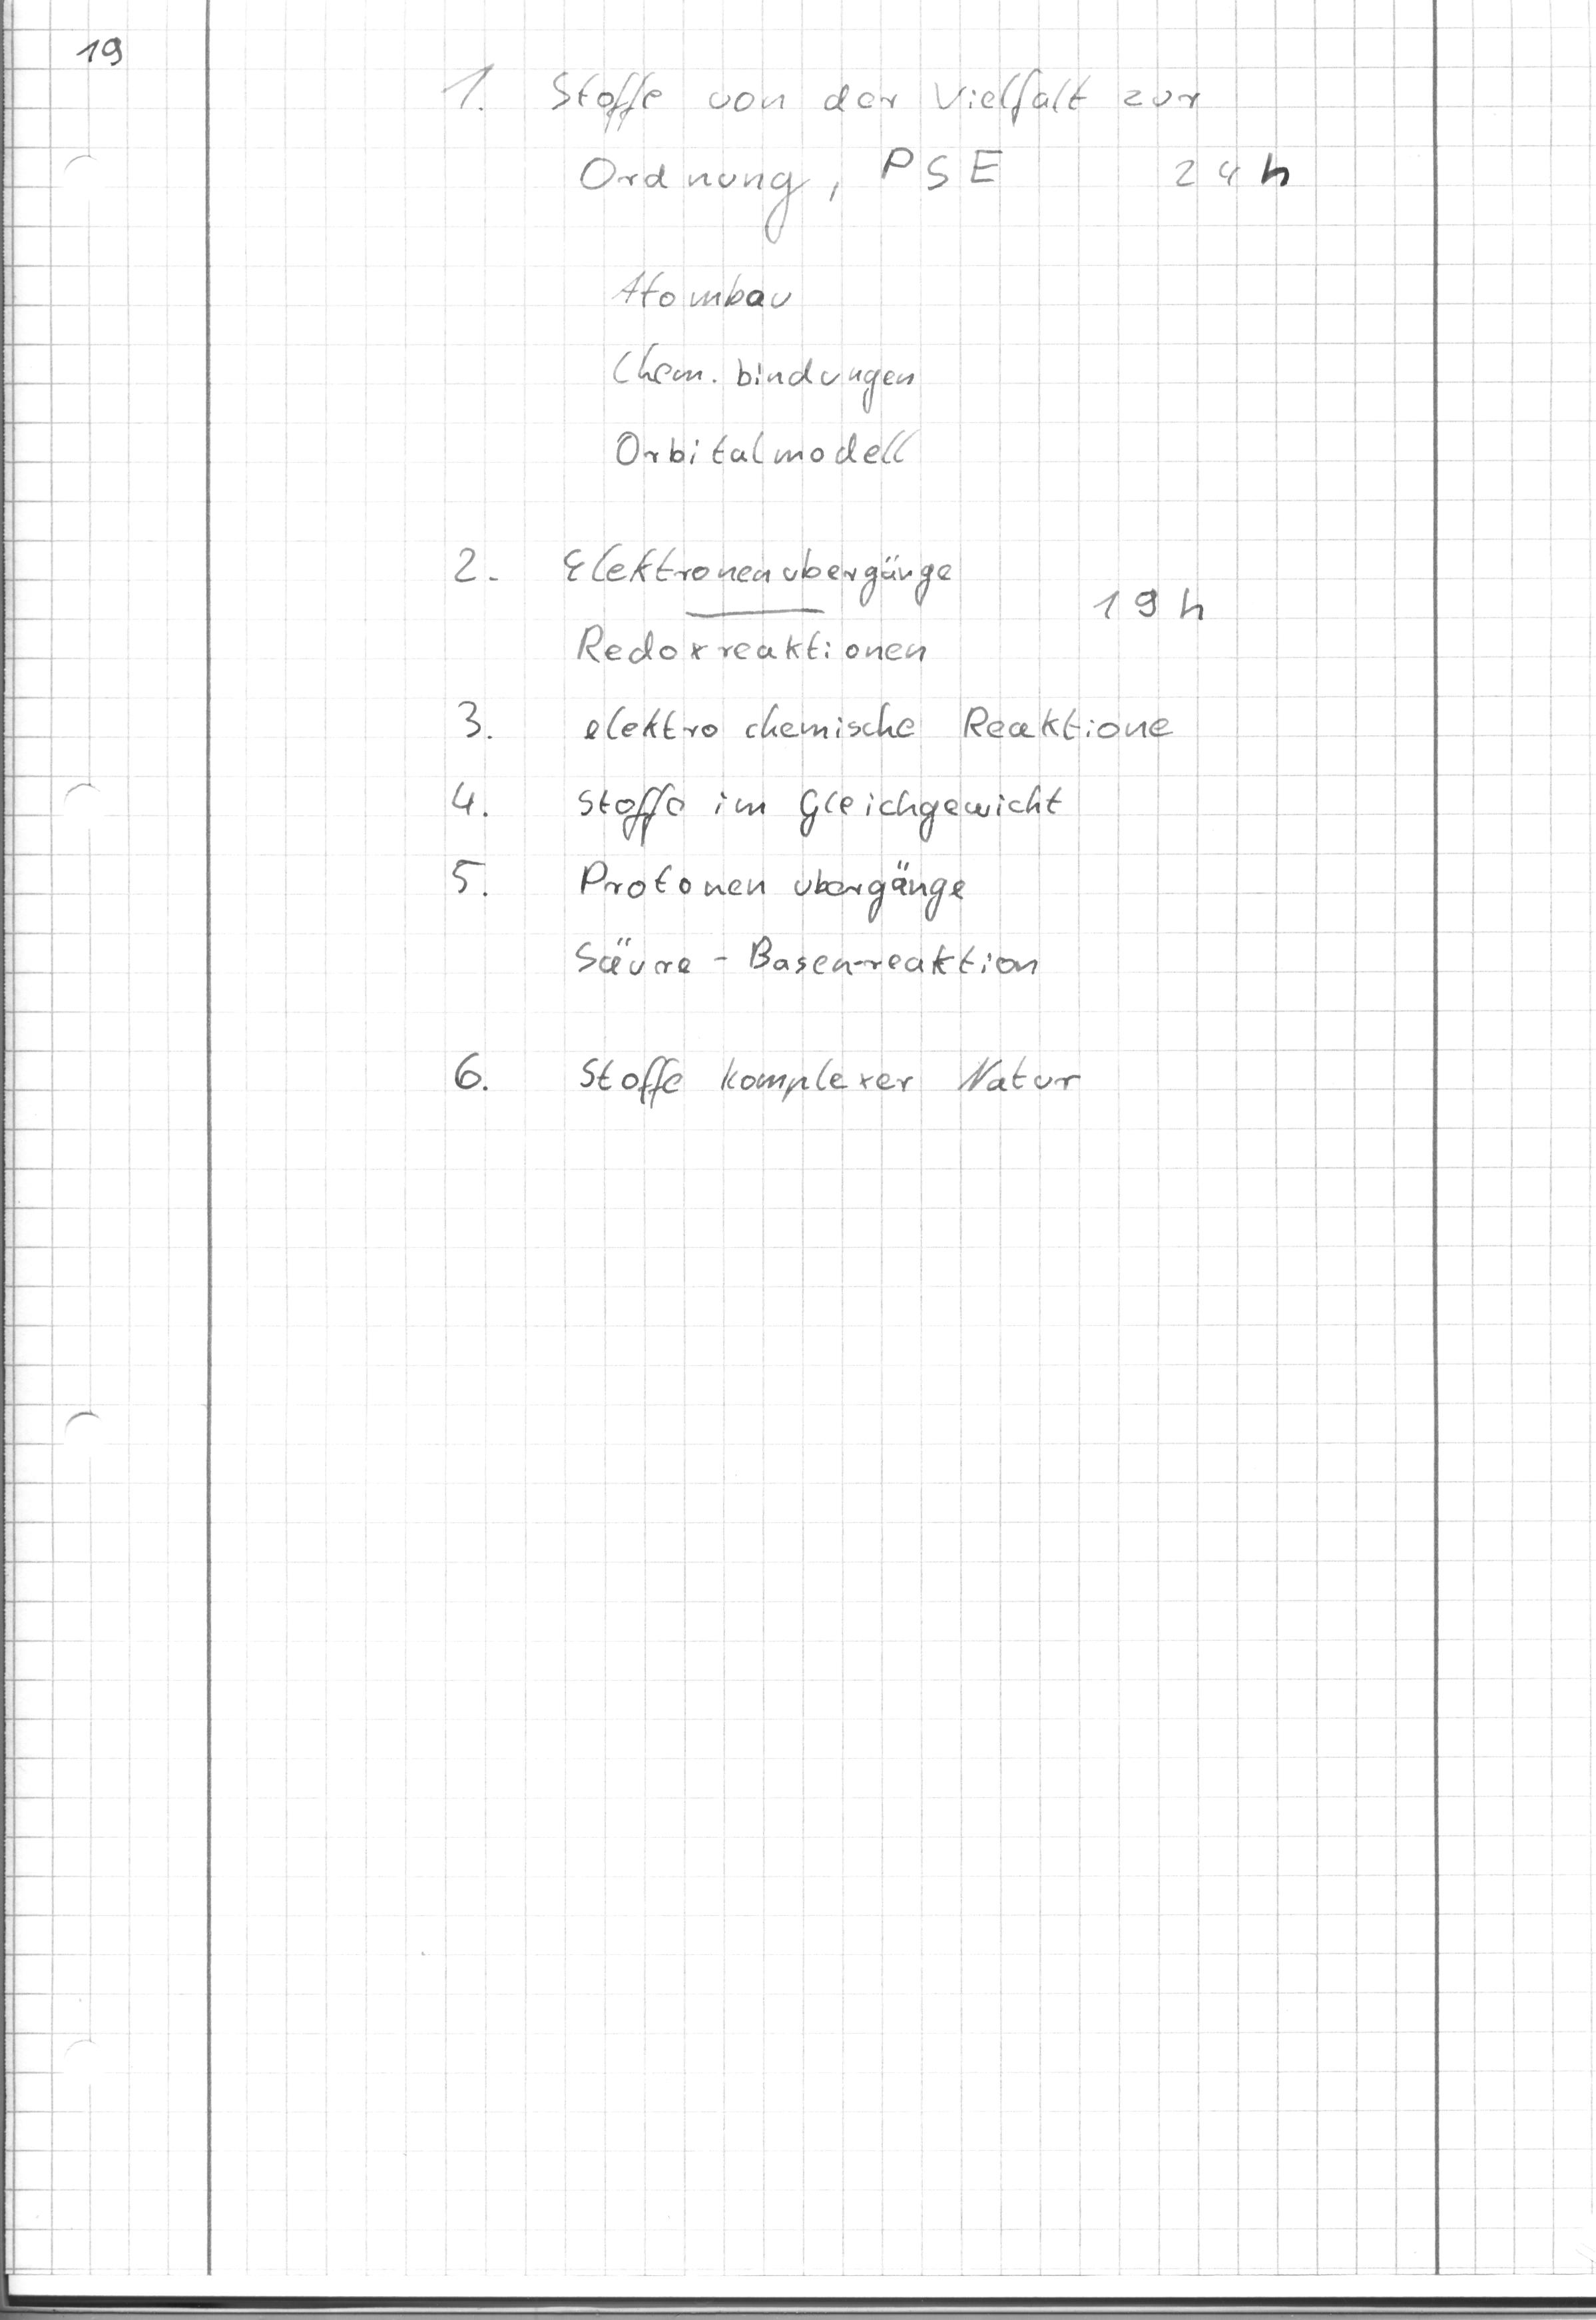 19
1. Stoffe von der Vielfalt zur
Ordnung, PSE 24h
Atombau
Chem. bindungen
Orbitalmodell
2. Elektronenubergänge
19h
Redoxreaktionen
3. elektrochemische Reaktione
4. Stoffe im Gleichgewicht
5. Protonenubergänge
Säure - Basen-reaktion
6. Stoffe komplexer Natur